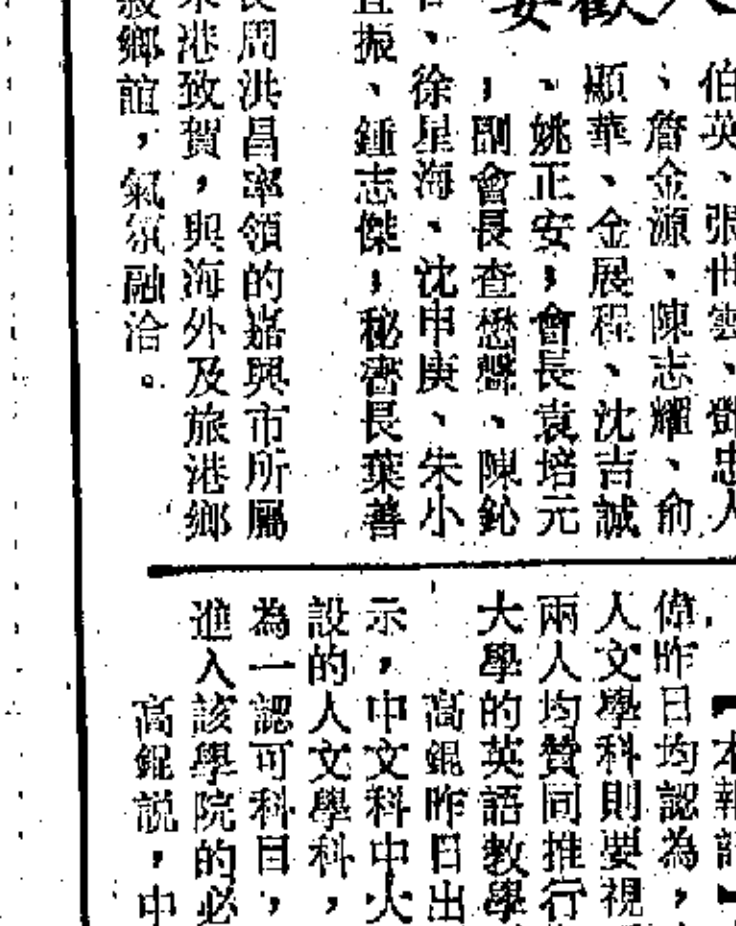 歡
伯英、張世雲、鄧忠人
、詹金源、陳志耀、俞
顯華、金展程、沈吉誠
、姚正安，會長袁培元
，副會長查懋聲、陳鈊
、徐星海、沈申庚、朱小
振、鍾志傑，秘書長葉善
周洪昌率領的嘉興市所屬
港致賀，與海外及旅港鄉
鄉誼，氣氛融洽。
【本報
偉昨日均認為，
人文學科則要視
兩人均贊同推行
大學的英語教學
高錕昨日出
示，中文科中大
設的人文學科，
為一認可科目，
進入該學院的必
高錕說，中